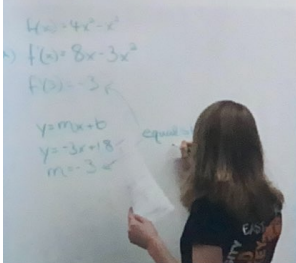 f(x)=4x²-x³
a) f'(x)=8x-3x²
f'(3)=-3
y=mx+b
y=-3x+18
m=-3
equal